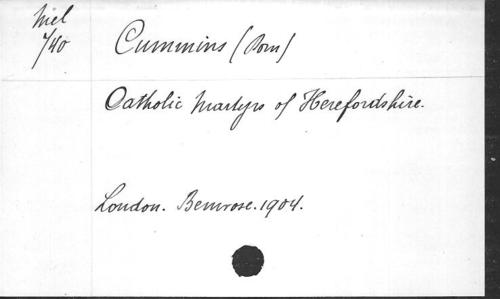 Cummins (Dom)
7/40
Catholic Martyrs of Herefordshire.
London. Bemrose. 1904.